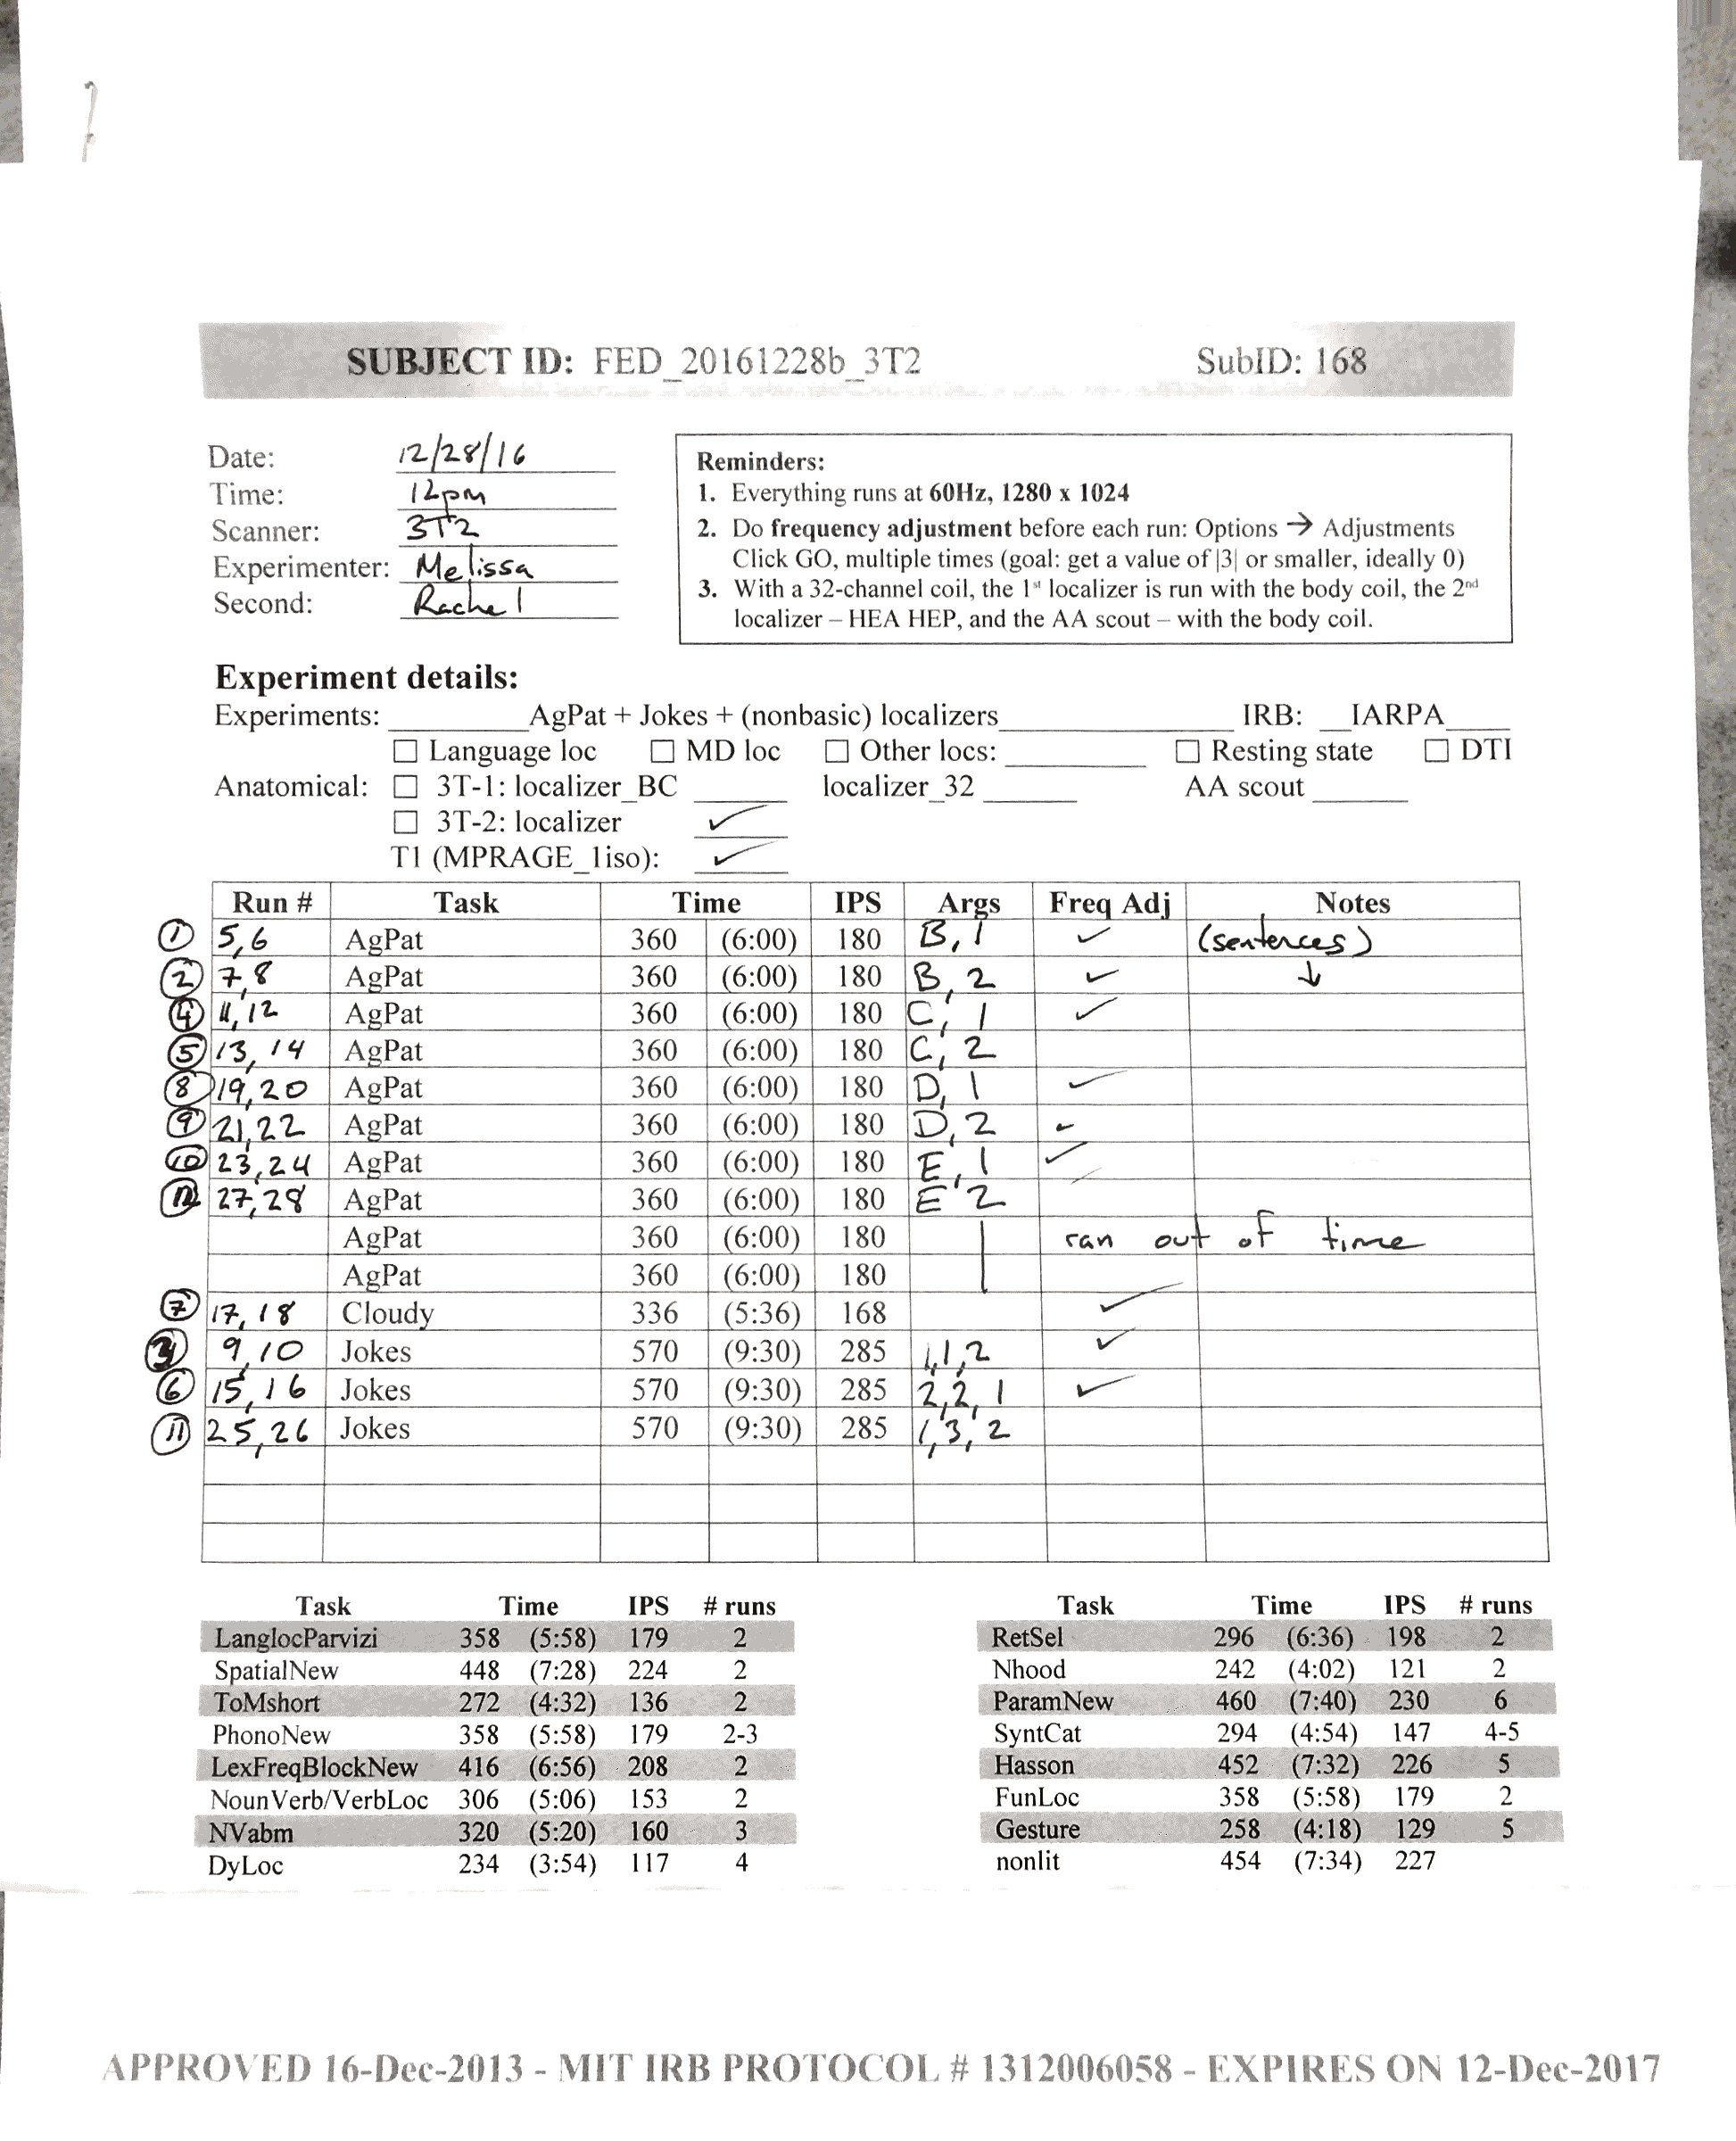 SUBJECT ID: FED_20161228b_3T2 SubID: 168
Date: 12/28/16
Time: 12pm
Scanner: 3T2
Experimenter: Melissa
Second: Rachel
Reminders:
1. Everything runs at 60Hz, 1280 x 1024
2. Do frequency adjustment before each run: Options → Adjustments
Click GO, multiple times (goal: get a value of |3| or smaller, ideally 0)
3. With a 32-channel coil, the 1st localizer is run with the body coil, the 2nd
localizer – HEA HEP, and the AA scout – with the body coil.
Experiment details:
Experiments: AgPat + Jokes + (nonbasic) localizers IRB: IARPA
☐ Language loc ☐ MD loc ☐ Other locs: ☐ Resting state ☐ DTI
Anatomical: ☐ 3T-1: localizer_BC localizer_32 AA scout
☐ 3T-2: localizer ✓
T1 (MPRAGE_1iso): ✓
Run # Task Time IPS Args Freq Adj Notes
① 5,6 AgPat 360 (6:00) 180 B, 1 ✓ (sentences)
② 7,8 AgPat 360 (6:00) 180 B, 2 ✓ ↓
④ 11,12 AgPat 360 (6:00) 180 C, 1 ✓
⑤ 13, 14 AgPat 360 (6:00) 180 C, 2
⑧ 19,20 AgPat 360 (6:00) 180 D, 1 ✓
⑨ 21,22 AgPat 360 (6:00) 180 D, 2 ✓
⑩ 23,24 AgPat 360 (6:00) 180 E, 1 ✓
⑫ 27,28 AgPat 360 (6:00) 180 E, 2
AgPat 360 (6:00) 180 ran out of time
AgPat 360 (6:00) 180
⑦ 17, 18 Cloudy 336 (5:36) 168 ✓
③ 9, 10 Jokes 570 (9:30) 285 1,1,2 ✓
⑥ 15, 16 Jokes 570 (9:30) 285 2,2,1 ✓
⑪ 25, 26 Jokes 570 (9:30) 285 1,3,2
Task Time IPS # runs
LanglocParvizi 358 (5:58) 179 2
SpatialNew 448 (7:28) 224 2
ToMshort 272 (4:32) 136 2
PhonoNew 358 (5:58) 179 2-3
LexFreqBlockNew 416 (6:56) 208 2
NounVerb/VerbLoc 306 (5:06) 153 2
NVabm 320 (5:20) 160 3
DyLoc 234 (3:54) 117 4
Task Time IPS # runs
RetSel 296 (6:36) 198 2
Nhood 242 (4:02) 121 2
ParamNew 460 (7:40) 230 6
SyntCat 294 (4:54) 147 4-5
Hasson 452 (7:32) 226 5
FunLoc 358 (5:58) 179 2
Gesture 258 (4:18) 129 5
nonlit 454 (7:34) 227
APPROVED 16-Dec-2013 - MIT IRB PROTOCOL # 1312006058 - EXPIRES ON 12-Dec-2017